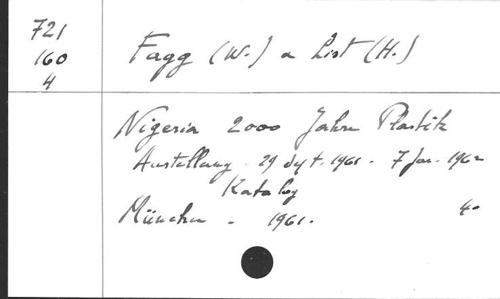 721
160
4
Fagg (W.) a List (H.)
Nigeria 2000 Jahre Plastik
Austellung - 29 Sept. 1961 - 7 Jan. 1962
Katalog
München - 1961.
4°